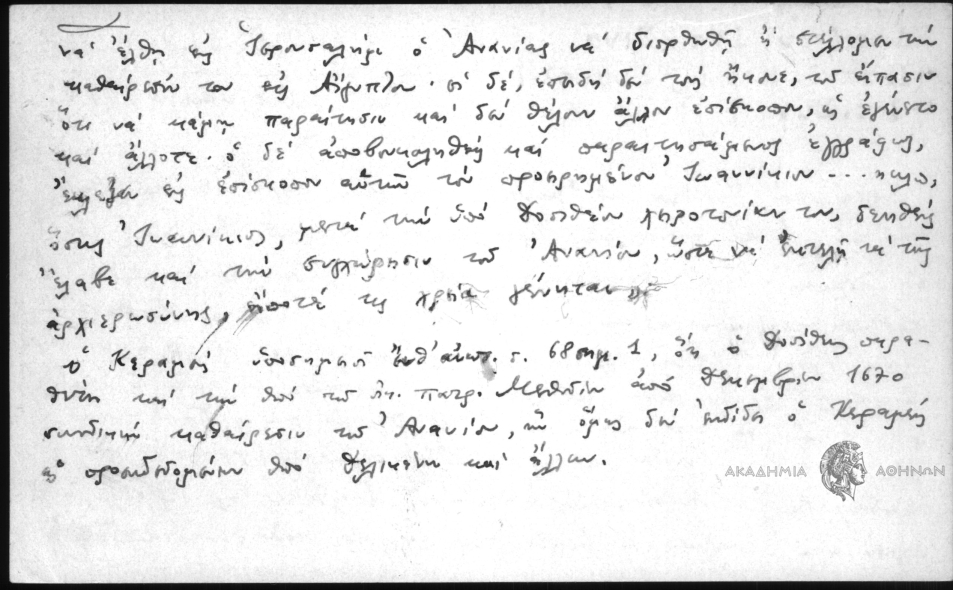 νά ἔλθῃ εἰς Ἱερουσαλήμ ὁ Ἀνανίας νά διορθωθῇ ἤ στέλλομεν τήν
καθαίρεσίν του εἰς Αἴγυπτον. οἱ δέ, ἐπειδή δέν τούς ἤκουε, τοῦ εἴπασιν
ὅτι νά κάμῃ παραίτησιν καί δέν θέλουν ἄλλον ἐπίσκοπον, ὡς ἐγένετο
καί ἄλλοτε. ὁ δέ ἀποβουκοληθείς καί παραιτησάμενος ἐγγράφως,
ἔκλεξαν εἰς ἐπίσκοπον αὐτῶν τόν προειρημένον Ἰωαννίκιον ...
ὅστις Ἰωαννίκιος, μετά τήν ὑπό Δοσιθέου χειροτονίαν του, δεηθείς
ἔλαβε καί τήν συγχώρησιν τοῦ Ἀνανίου, ὥστε νά ἐκτελῇ τά τῆς
ἀρχιερωσύνης, εἴποτέ τις χρεία γένηται»
ὁ Κεραμεύς ὑποσημειοῖ ἔνθ' ἀνωτ. σ. 68 σημ. 1, ὅτι ὁ Δοσίθεος παρα-
θέτει καί τήν ὑπό τοῦ Οἰκ. πατρ. Μεθοδίου ἀπό Δεκεμβρίου 1670
συνοδικήν καθαίρεσιν τοῦ Ἀνανίου, ἥν ὅμως δέν ἐκδίδει ὁ Κεραμεύς
ὡς προεκδεδομένην ὑπό Δελικάνη καί ἄλλων.
ΑΚΑΔΗΜΙΑ ΑΘΗΝΩΝ